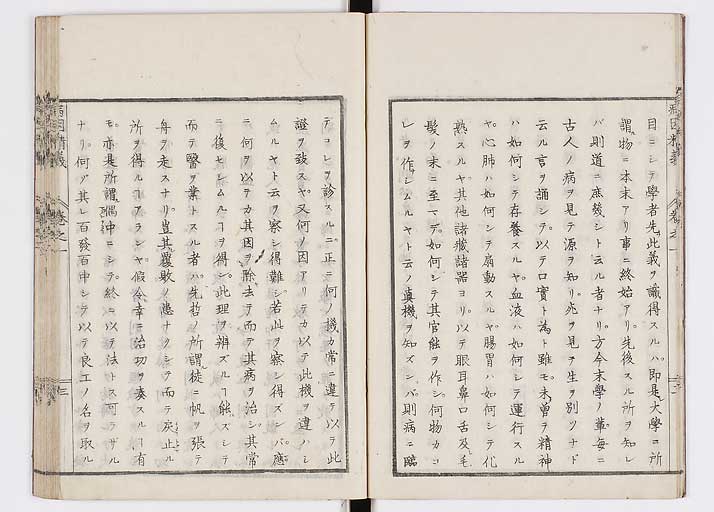 目ニシテ學者先此義ヲ識得スルハ即是大學ニ所
謂物ニ本末アリ事ニ終始アリ先後スル所ヲ知レ
バ則道ニ庶幾シト云ル者ナリ方今末學ノ輩毎ニ
古人ノ病ヲ見テ源ヲ知リ死ヲ見テ生ヲ別ツナド
云ル言ヲ誦シテ以テ口實ト為ト雖モ未曽テ精神
ハ如何シテ存養スルヤ血液ハ如何シテ運行スル
ヤ心肺ハ如何シテ扇動スルヤ腸胃ハ如何シテ化
熟スルヤ其他諸臓諸器ヨリ以テ眼耳鼻口舌及毛
髪ノ末ニ至マデ如何シテ其官能ヲ作シ何物カコ
レヲ作シムルヤト云ノ眞機ヲ知ズンバ則病ニ臨
テコレヲ診スルニ正ニ何ノ機カ常ニ違テ以テ此
證ヲ致スヤ又何ノ因アリテカ以テ此機ヲ違ハシ
ムルヤト云ヲ察シ得難シ若此ヲ察シ得ズンバ應
ニ何ヲ以テカ其因ヲ除去テ而テ其病ヲ治シ其常
ニ復セシムルヿヲ得ン此理ヲ辨ズルヿ能ズシテ
而テ醫ヲ業トスル者ハ先哲ノ所謂徒ニ帆ヲ張テ
舟ヲ走スナリ豈其覆敗ノ患ナクシテ而テ灰止ル
所ヲ得ルヿアランヤ假令幸ニ治功ヲ奏スルヿ有
モ亦是所謂偶中ニシテ終ニ以テ法トス可ラザル
ナリ何ゾ其レ百發百中シテ以テ良工ノ名ヲ取ル
病因精義
卷之一
三